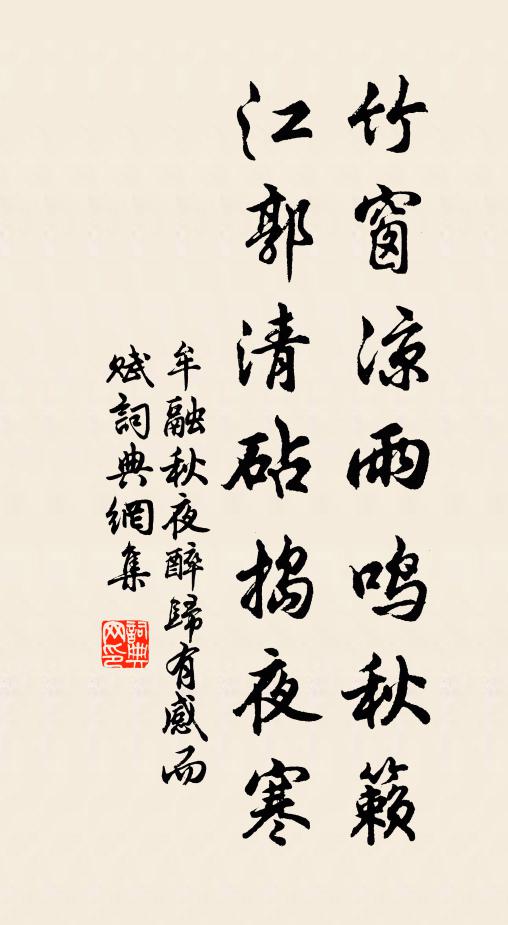 竹窗凉雨鸣秋籁
江郭清砧捣夜寒
牟融秋夜醉歸有感而
赋詞典網集
詞典网印